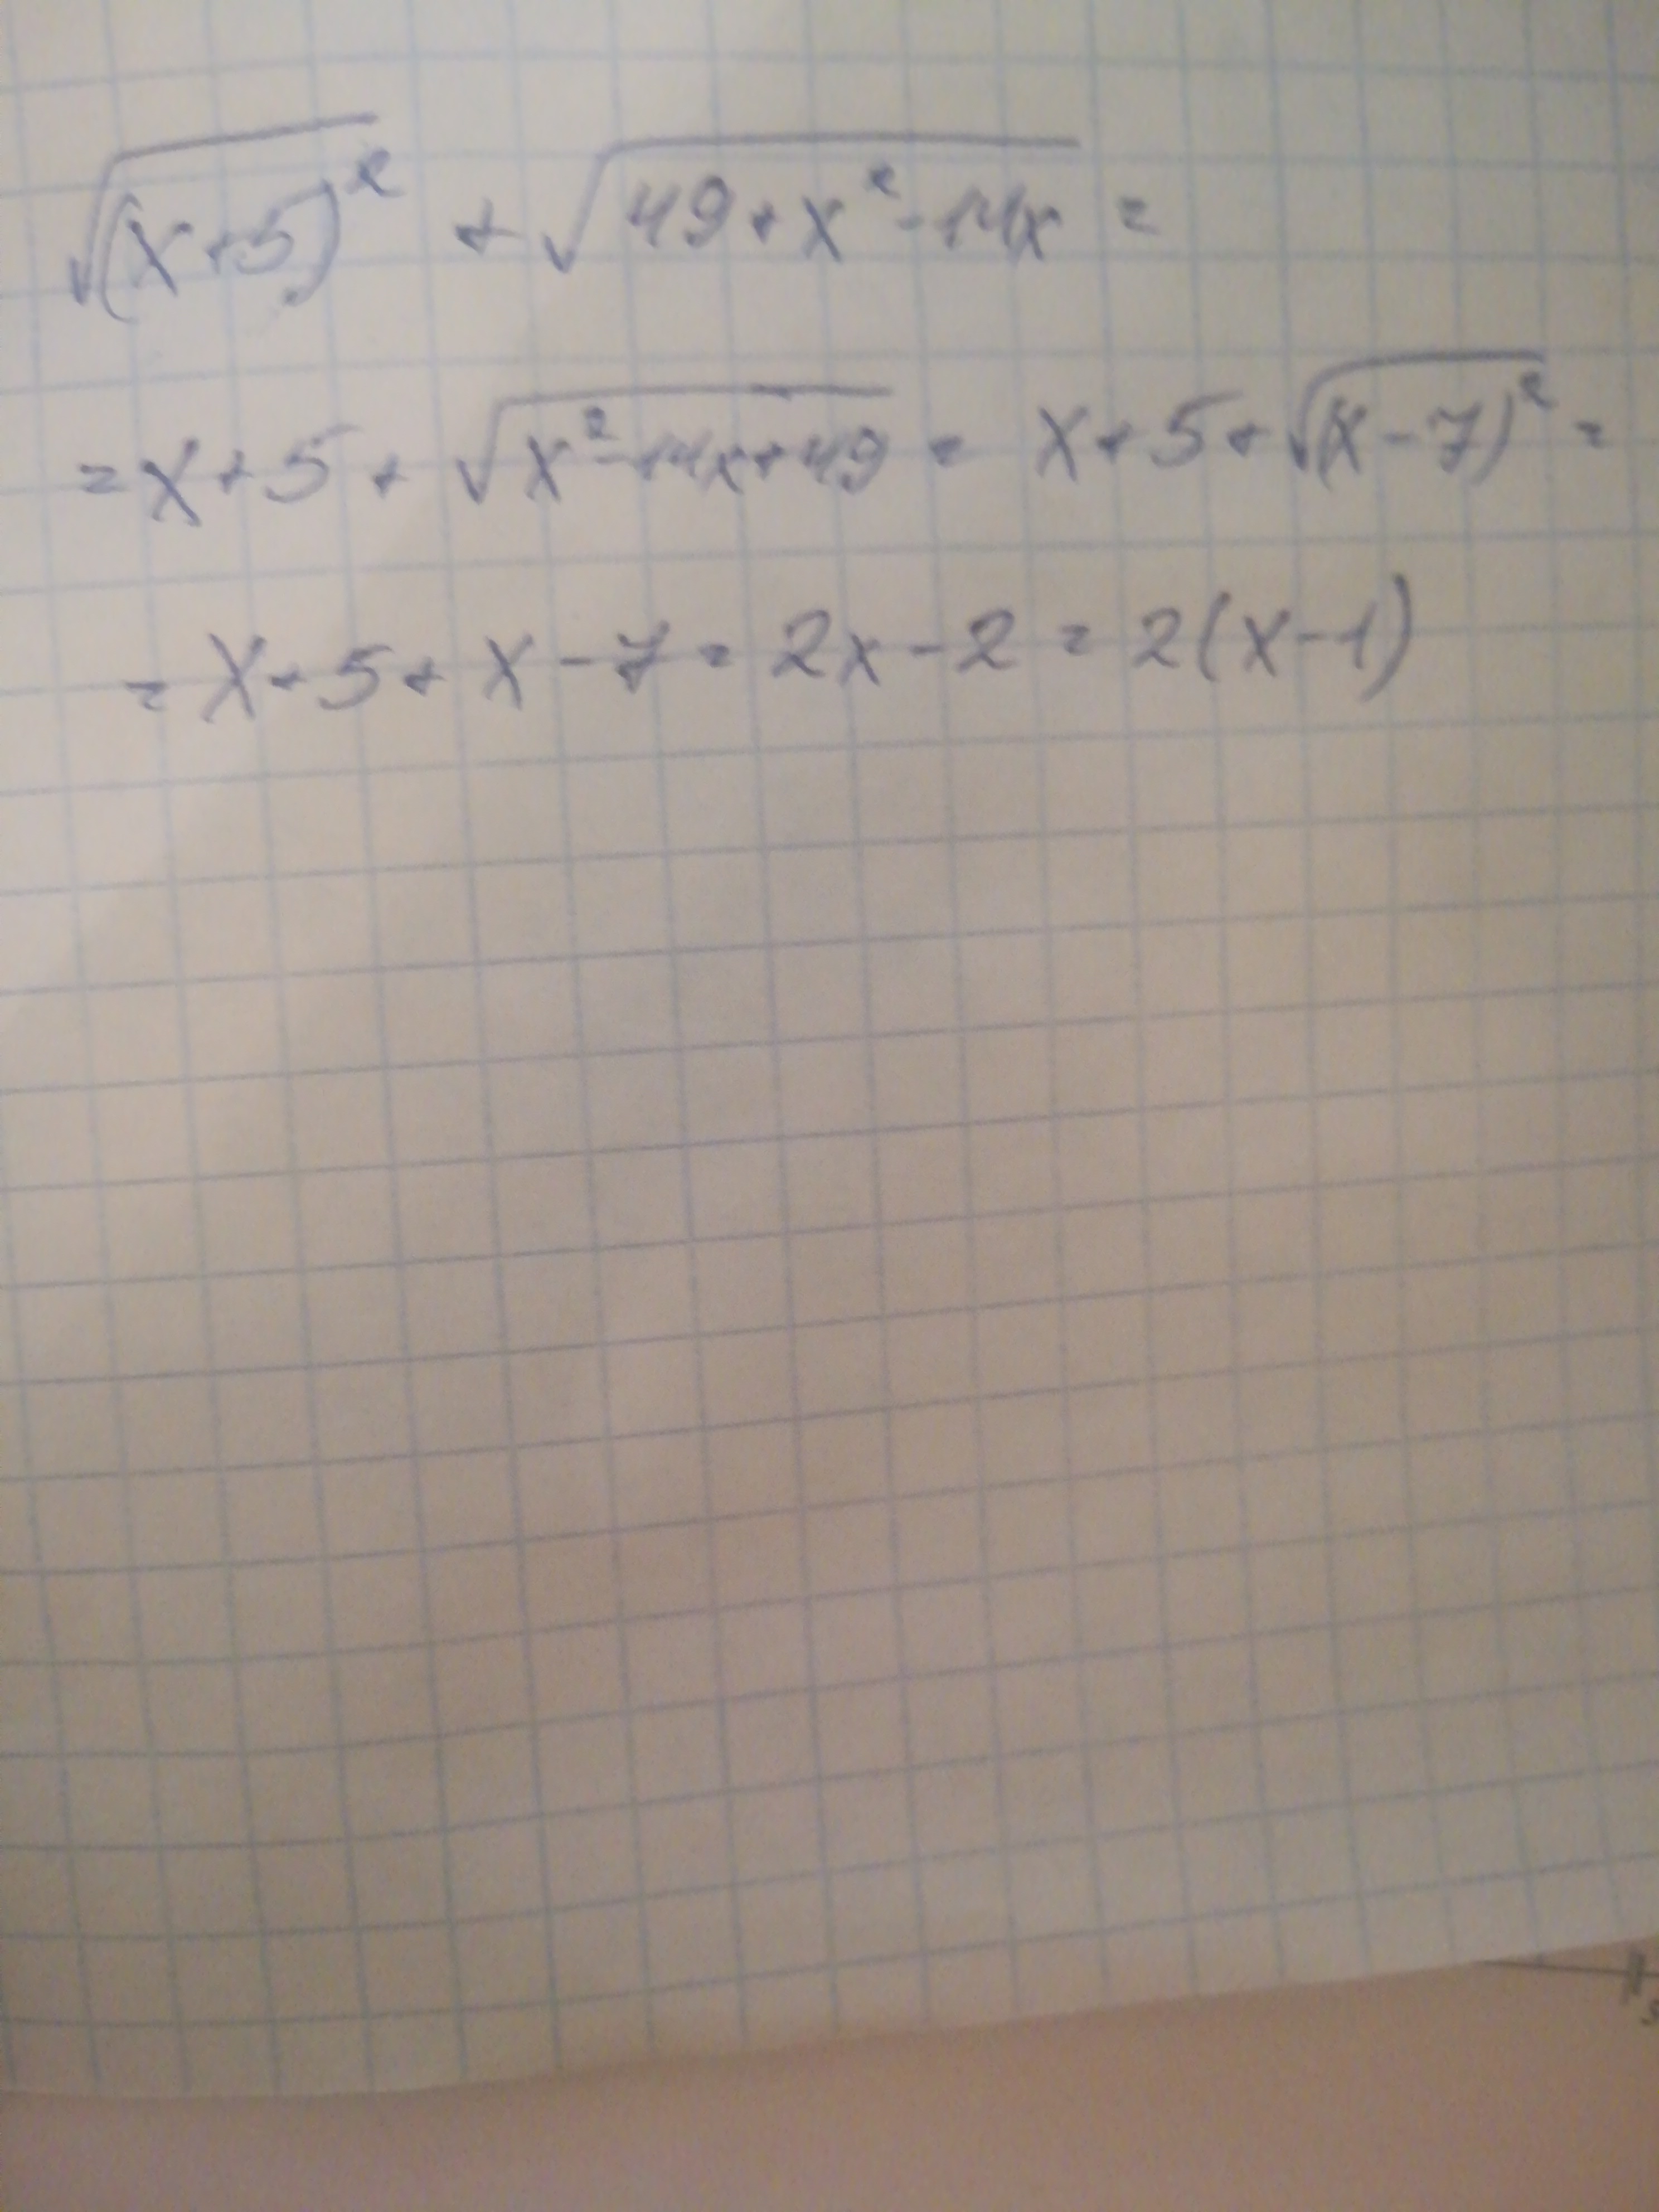 √(x+5)² + √49+x²-14x =
= x+5+ √x²-14x+49 = x+5+√(x-7)² =
= x+5+x-7 = 2x-2 = 2(x-1)